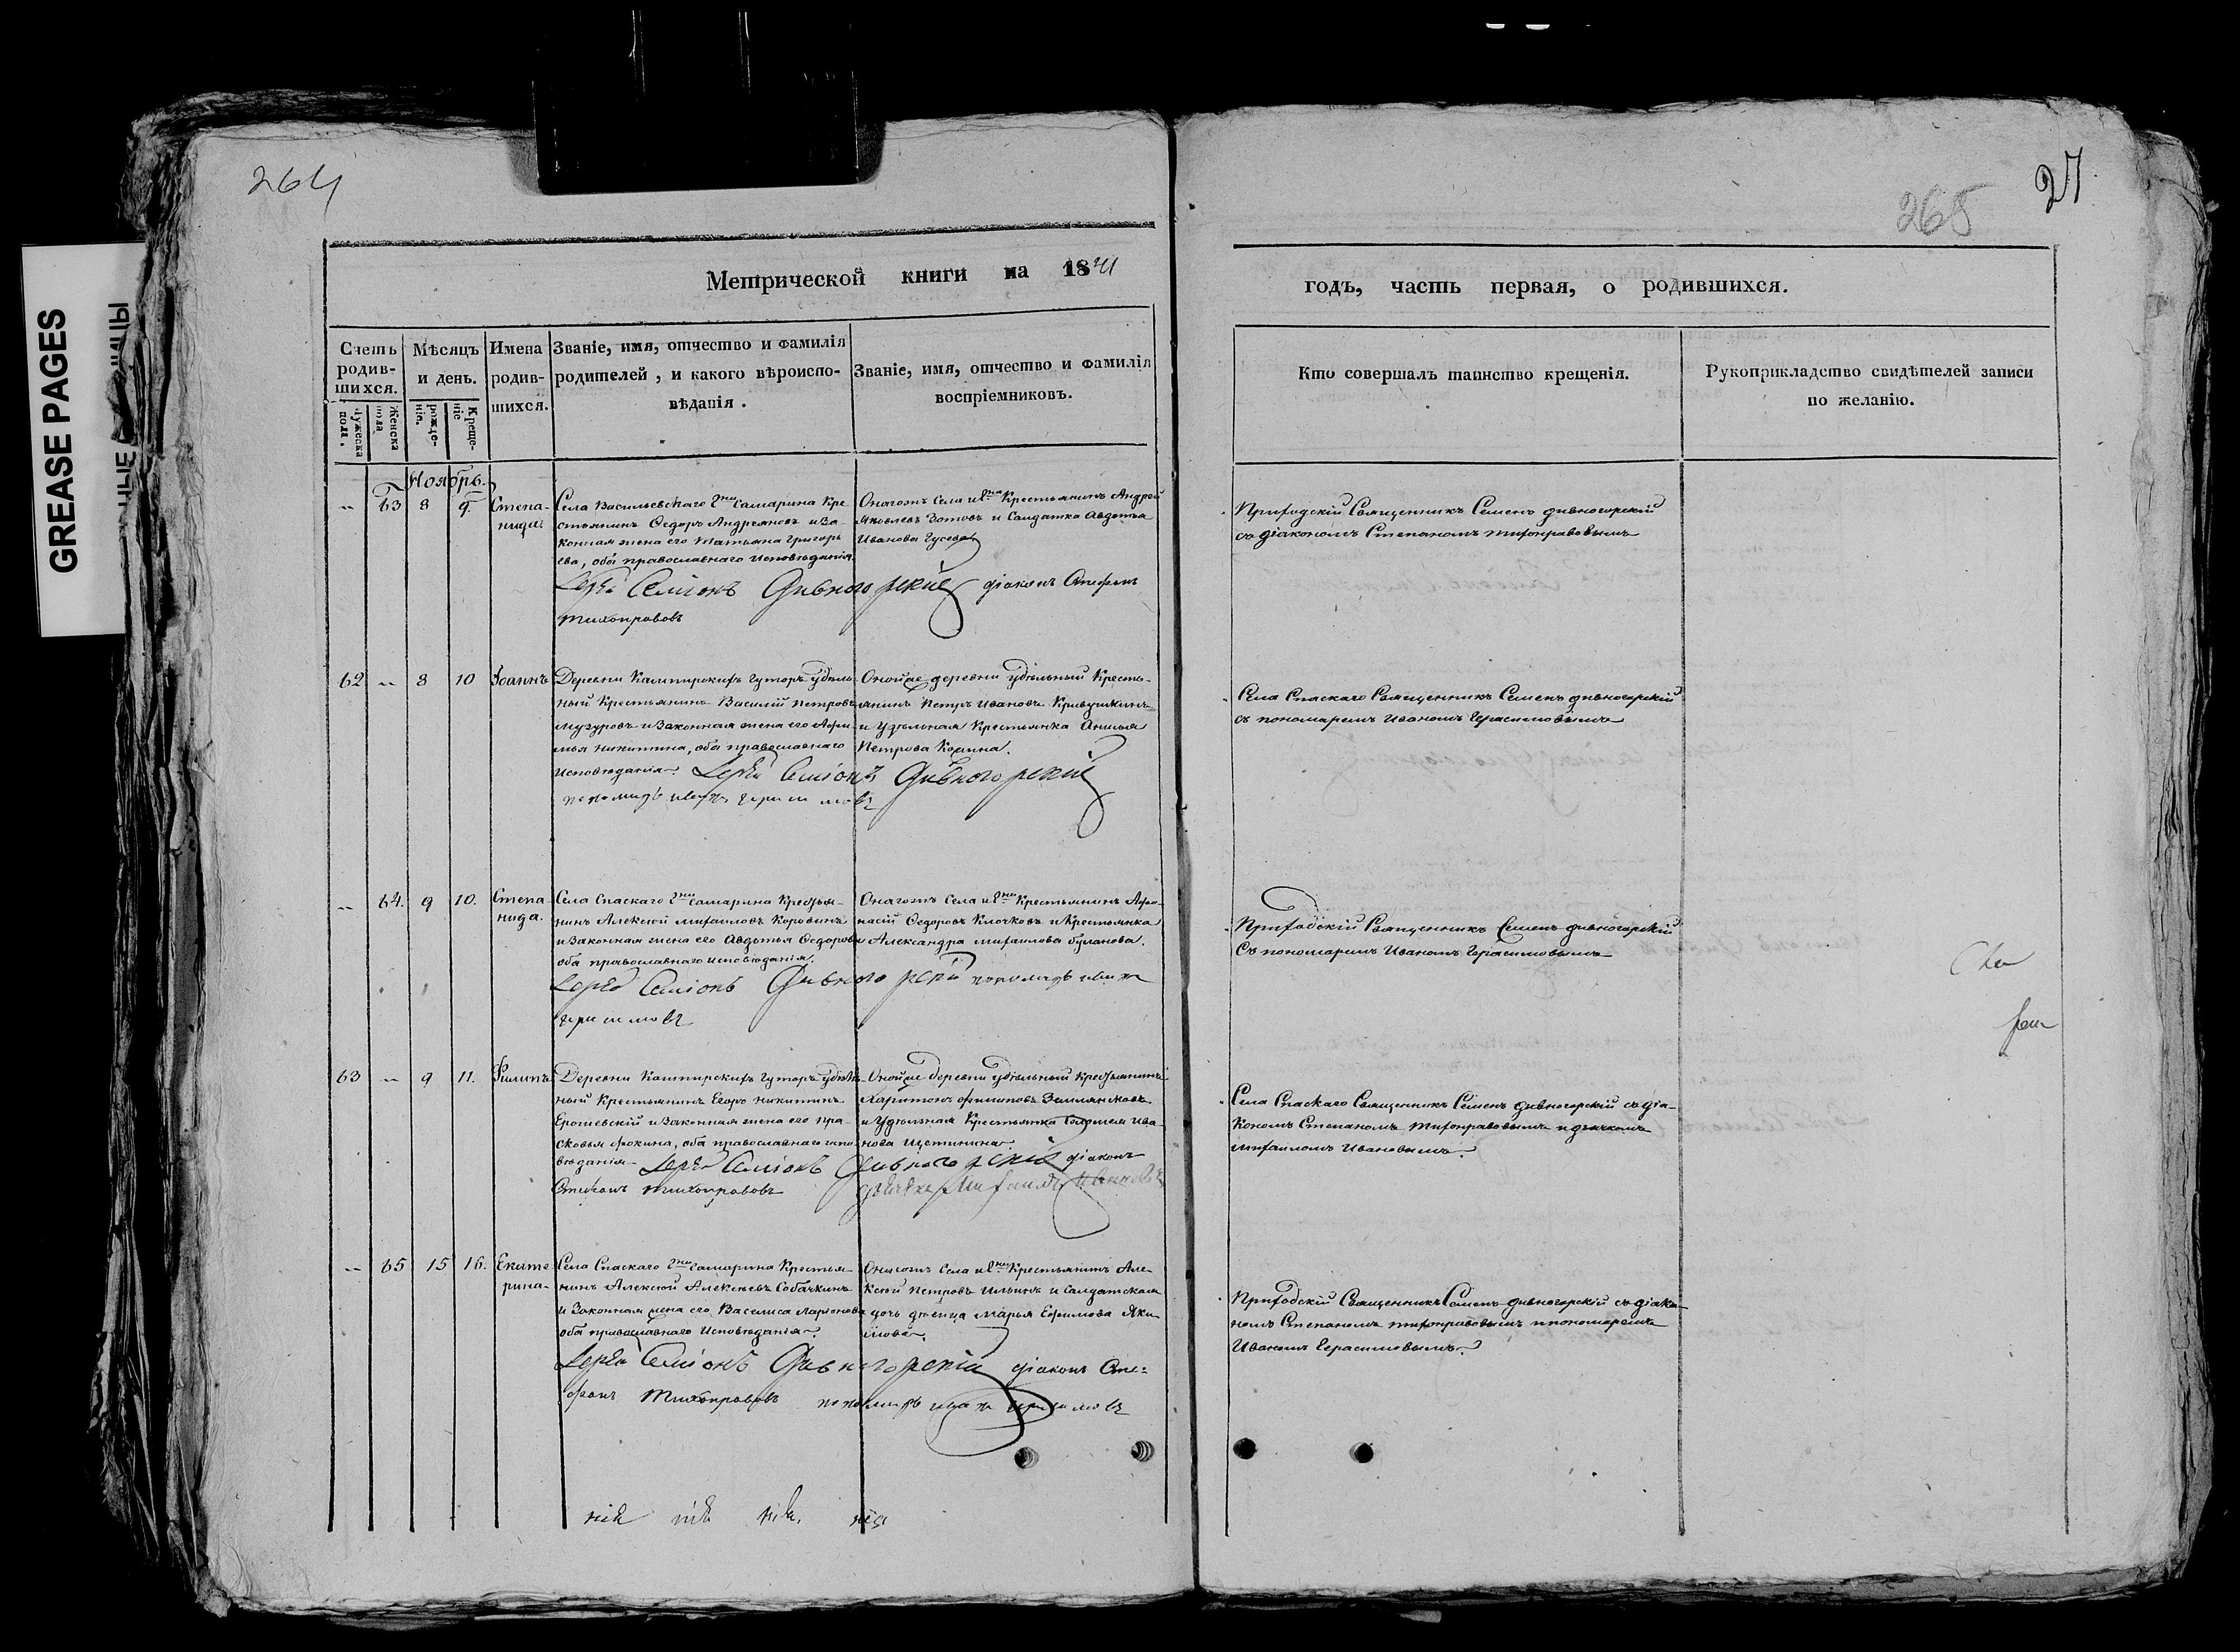 GREASE PAGES
264
265
27
Метрической книги на 1841
годъ, часть первая, о родившихся.
Счетъ родившихся.
Мужеска пола.
Женска пола
Мѣсяцъ и день.
рождение.
Крещеніе
Имена родившихся.
Званіе, имя, отчество и фамилія
родителей, и какого вѣроиспо-
вѣданія.
Званіе, имя, отчество и фамилія
воспріемниковъ.
Кто совершалъ таинство крещенія.
Рукоприкладство свидѣтелей записи
по желанію.
Ноябрь
-- 63 8 9 Степанида
Села Васильевскаго Гжи Самарина Кре
стьянинъ Федоръ Андреяновъ и за-
конная жена его Татьяна Григорь
ева, оба православнаго исповѣданія
Іерей Симіонъ Дивногорскій діаконъ Стефанъ
Тихонравовъ
Онагожъ Села и Гжи Крестьянинъ Андрей
Яковлевъ Зотовъ и Салдатка Авдотья
Иванова Гусева
Приходскій Священникъ Семенъ Дивногорскій
со діакономъ Степаномъ Тихонравовымъ
62 -- 8 10 Іоаннъ
Деревни Каширскихъ Хуторъ удѣль
ный Крестьянинъ Василій Петровъ
и Законная жена его
Никитина, оба православнаго
исповѣданія. Іерей Симіонъ Дивногорскій
Оной же деревни удѣльный Кресть-
янинъ Петръ Ивановъ Кривушкинъ
и Удѣльная Крестьянка Анисья
Петрова
Села Спаскаго Священникъ Семенъ Дивногорскій
съ пономаремъ Иваномъ Герасимовымъ
-- 64. 9 10. Степанида.
Села Спаскаго Гжи Самарина Крестья-
нинъ Алексѣй Михаиловъ Коровинъ
и Законная жена его Авдотья Федорова
оба православнаго исповѣданія.
Іерей Симіонъ Дивногорскій пономарь Иванъ
Герасимовъ
Онагожъ Села и Гжи Крестьянинъ Афо-
насій Федоровъ Клочковъ и Крестьянка
Александра Михаилова Буланова.
Приходскій Священникъ Семенъ Дивногорскій
Съ пономаремъ Иваномъ Герасимовымъ
63 -- 9 11. Филипъ
Деревни Каширскихъ Хуторъ удѣль-
ный Крестьянинъ Егоръ Никитинъ
Ерошевскій и Законная жена его Пра-
сковья Фокина, оба православнаго испо-
вѣданія Іерей Симіонъ Дивногорскій діаконъ
Стефанъ Тихонравовъ
Оной же деревни удѣльный Крестьянинъ
Харитонъ Филиповъ
и Удѣльная Крестьянка Ива-
нова Щетинина
Села Спаскаго Священникъ Семенъ Дивногорскій съ діа-
кономъ Степаномъ Тихонравовымъ и дьячкомъ
Михаиломъ Ивановымъ.
-- 65 15 16. Екатерина
Села Спаскаго Гжи Самарина Крестья-
нинъ Алексѣй Алексѣевъ Собачкинъ
и Законная жена его Василиса Ларіонова
оба православнаго исповѣданія.
Іерей Симіонъ Дивногорскій діаконъ Сте-
фанъ Тихонравовъ пономарь Иванъ Герасимовъ
Онагожъ Села и Гжи Крестьянинъ Але-
ксѣй Петровъ Ильинъ и Салдатская
дочь дѣвица Марья Ефимова Яки
мова.
Приходскій Священникъ Семенъ Дивногорскій съ діако-
номъ Степаномъ Тихонравовымъ и пономаремъ
Иваномъ Герасимовымъ.